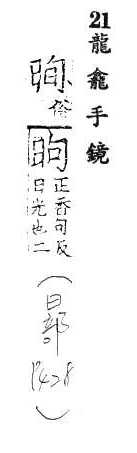 21 龍龕手鏡
俗
昫 正香句反
日光也二
（日部 P428）